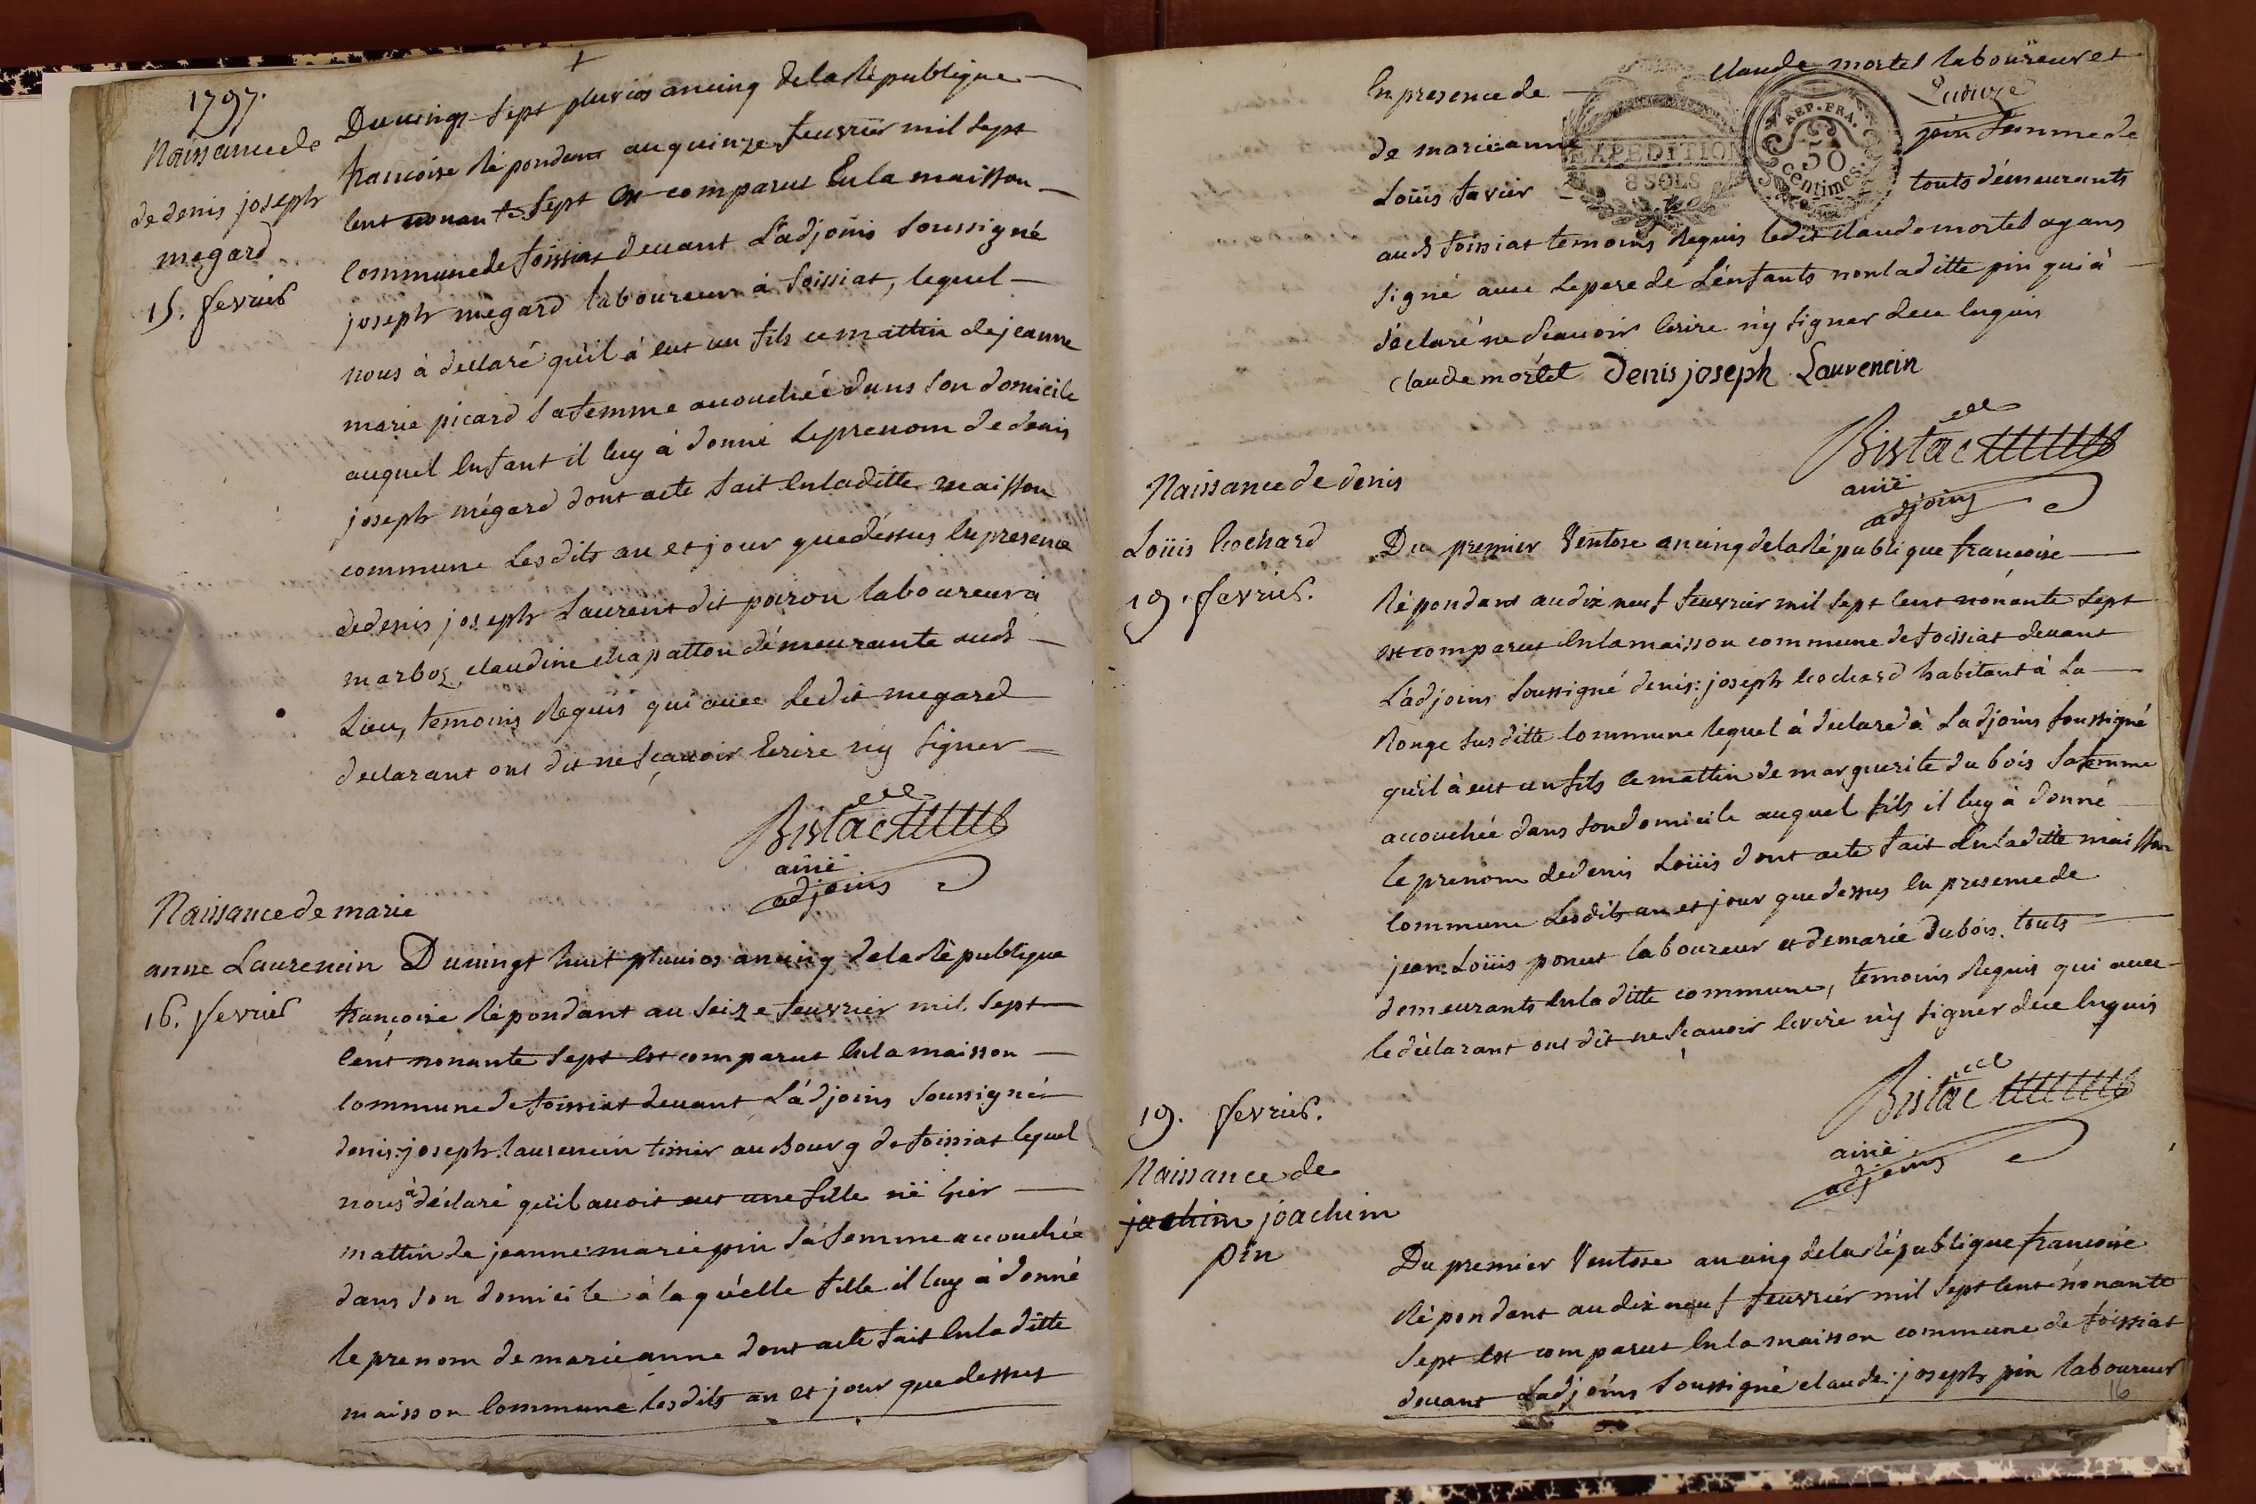 1797.
Naissance de
de denis joseph
megard
15. fevrier
Du vingt sept pluvios an cinq de la République
francoise Répondant au quinze feuvrier mil sept
cent nonante Sept est comparut En la maisson
commune de foissiat devant L'adjoins soussigné
joseph megard laboureur à foissiat, lequel
nous à déclaré qu'il à eut un fils ce mattin de jeanne
marie picard sa femme accouchée dans son domicile
auquel Enfant il luy à donné le prenom de denis
joseph mégard dont acte fait En laditte maisson
commune Lesdits an et jour que dessus En presence
de denis joseph Laurent dit poiron laboureur à
marboz, claudine chapatton démeurante audt
Lieu, temoins Requis qui avec Le dit megard
declarant ont dit ne sçavoir Ecrire n'y signer
Bistac
ainé
adjoins
Naissance de marie
anne Laurencin
16. fevrier
Du vingt huit pluvios an cinq de la République
françoise Répondant au seize feuvrier mil sept
cent nonante sept Est comparut En la maisson
commune de foissiat devant L'ádjoins soussigné
denis: joseph Laurencin au Bourg de foissiat lequel
nous à déclaré qu'il avoit eut une fille né hier
mattin de jeanne: marie pin sa femme accouchée
dans son domicile à la quelle fille il luy à donné
le prenom de marie anne dont acte fait En la ditte
maisson commune lesdits an et jour que dessus
En presence de claude mortel laboureur et
de marie anne pin femme de
Loüis favier touts démeurants
EXPEDITION
8 SOLS
REP. FRA.
50
centimes.
audt foissiat temoins Requis ledit claude mortel ayans
signé avec le pere de L'énfants non laditte pin qui à
déclaré ne sçavoir Ecrire n'y signer de ce Enquis
Claude mortel Denis joseph Laurencin
Bistac
ainé
adjoins
Naissance de denis
Loüis Cochard
19. fevrier.
Du premier Ventose an cinq de la République francoise
Répondant au dix neuf feuvrier mil sept cent nonante sept
est comparut En la maisson commune de foissiat devant
L'adjoins soussigné denis: joseph Cochard habitant à La
Ronge sus ditte commune lequel à declaré à Ladjoins soussigné
qu'il à eut un fils ce mattin de marguerite du bois sa femme
accouchée dans son domicile auquel fils il luy à donné
le prenom de denis Loüis dont acte fait En laditte maisson
commune Lesdits an et jour que dessus En presence de
jean: Loüis ponent laboureur et de marie Dubois touts
demeurants En la ditte commune, temoins Requis qui avec
le déclarant ont dit ne sçavoir Ecrire n'y signer de ce Enquis
Bistac
ainé
adjoins
19. fevrier.
Naissance de
jachim joachim
pin
Du premier Ventose an cinq de la République francoise
Répondant au dix neuf feuvrier mil sept cent nonante
sept Est comparut En la maisson commune de foissiat
devant Ladjoins soussigné claude: joseph pin laboureur
16